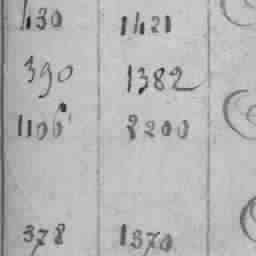 430 1421
390 1382
1106 8200
378 1370